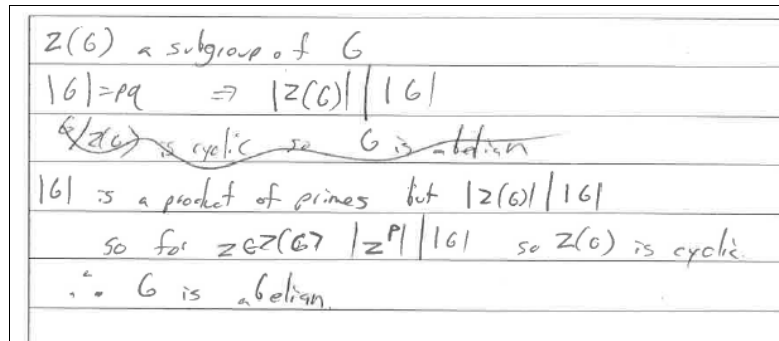 Z(G) a subgroup of G
|G|=pq ⇒ |Z(G)| | |G|
G/Z(G) is cyclic so G is abelian
|G| is a product of primes but |Z(G)| | |G|
so for z∈Z(G) |z^p| | |G| so Z(G) is cyclic.
∴ G is abelian.